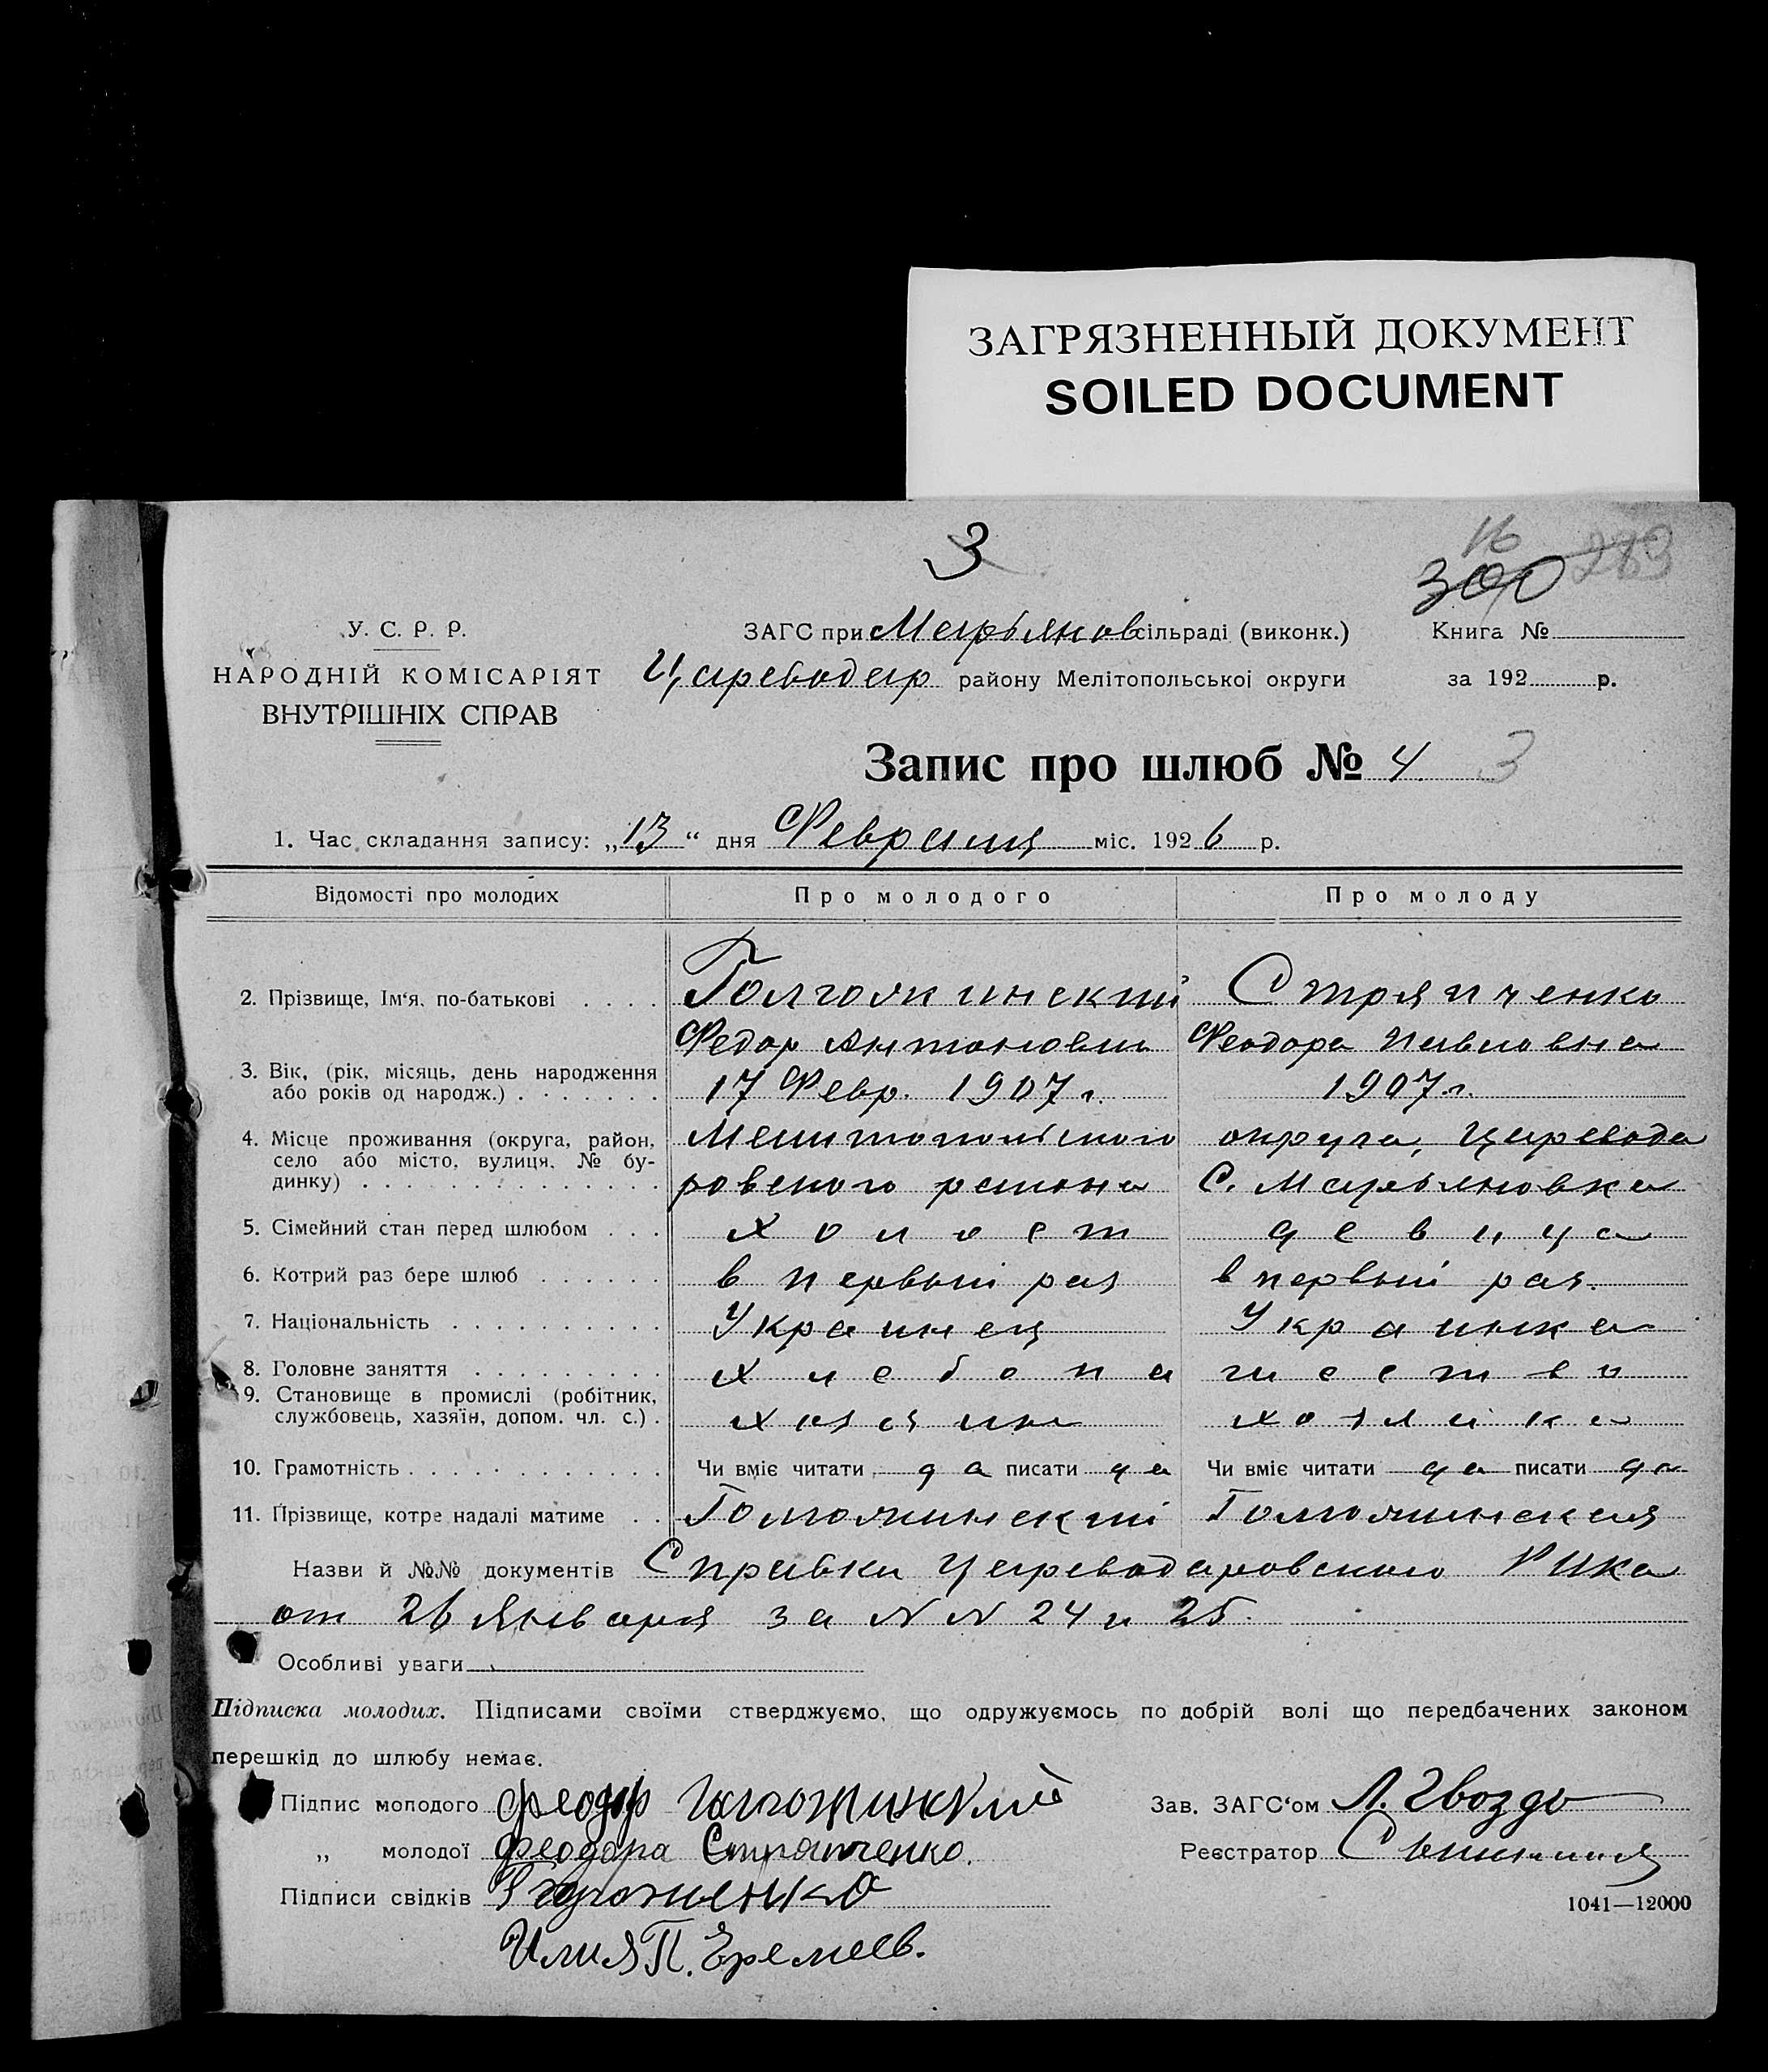 ЗАГРЯЗНЕННЫЙ ДОКУМЕНТ
SOILED DOCUMENT
3
16
300 289
У. С. Р. Р.
НАРОДНІЙ КОМІСАРІЯТ
ВНУТРІШНІХ СПРАВ
ЗАГС при Марьянов сільраді (виконк.)
Цареводар району Мелітопольської округи
Книга №
за 192 р.
Запис про шлюб № 4. 3
1. Час складання запису: „13“ дня Февраля міс. 1926 р.
Відомості про молодих Про молодого Про молоду
2. Прізвище, Ім'я, по-батькові Стряпченко
Федор Антонович Феодора Павловна
3. Вік, (рік, місяць, день народження
або років од народж.) 17 Февр. 1907 г. 1907 г.
4. Місце проживання (округа, район, Мелитопольского округа, Царевода
село або місто, вулиця, № бу-
динку) ровского района С. Марьяновка
5. Сімейний стан перед шлюбом холост девица
6. Котрий раз бере шлюб в первый раз в первый раз.
7. Національність Украинец Украинка
8. Головне заняття хлебопашество
9. Становище в промислі (робітник,
службовець, хазяїн, допом. чл. с.) хозяин хозяйка
10. Грамотність Чи вміє читати да писати да Чи вміє читати да писати да
11. Прізвище, котре надалі матиме
Назви й №№ документів Справки Цареводаровского РИКа
от 26 Января за N N 24 и 25.
Особливі уваги
Підписка молодих. Підписами своїми стверджуємо, що одружуємось по добрій волі що передбачених законом
перешкід до шлюбу немає.
Підпис молодого Феодор
„ молодої Феодора Стряпченко.
Підписи свідків
Илия П. Еремеев.
Зав. ЗАГС'ом Л. Гвоздь
Реєстратор
1041—12000